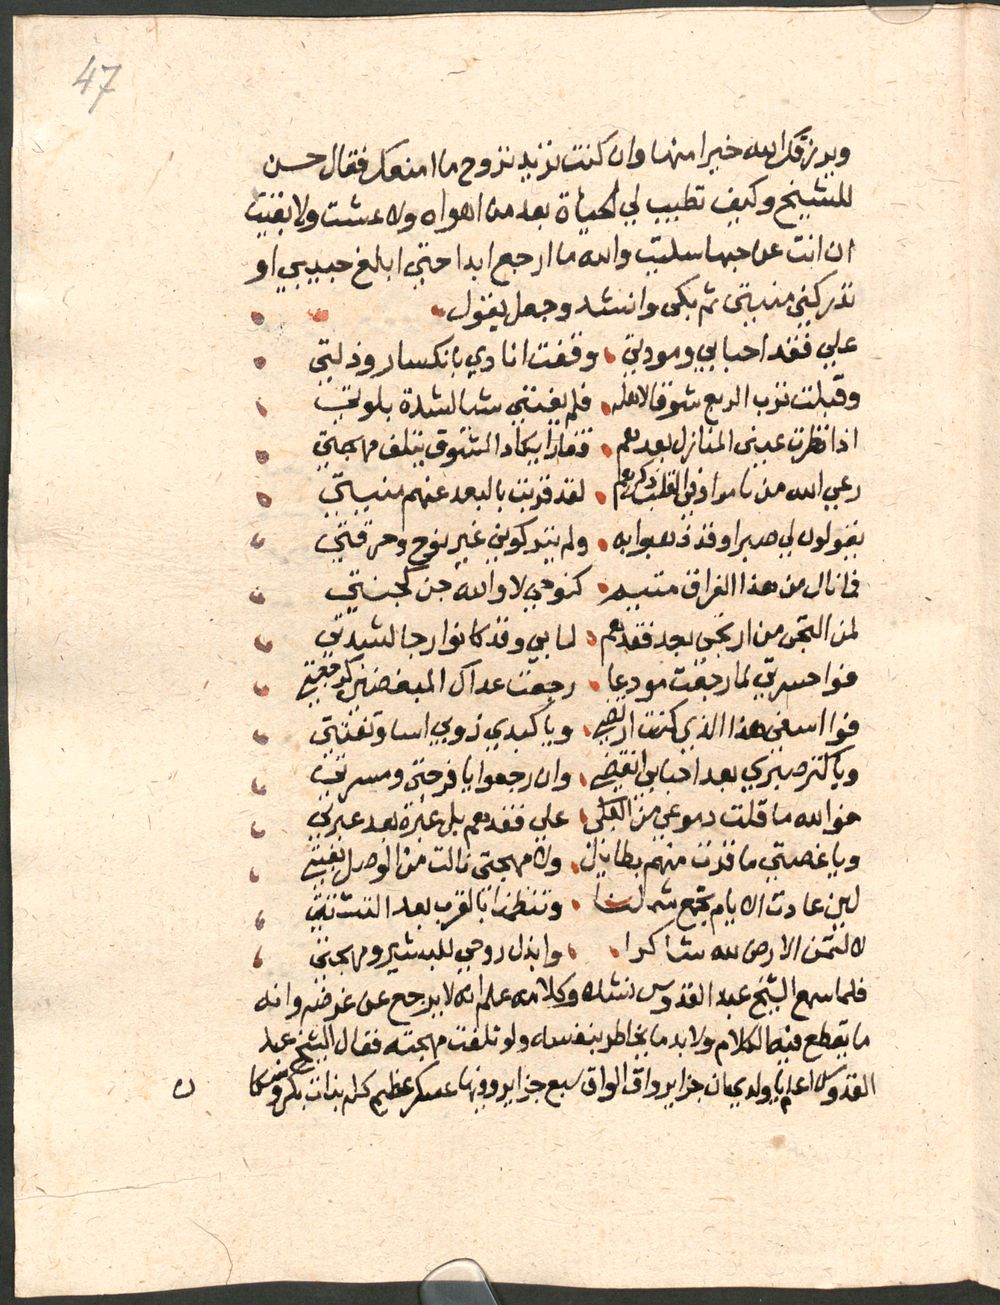 47
ويرزقك الله خيرا منها وان كنت تريد تروح ما امنعك فقال حسن
للشيخ وكيف تطيب لي الحياة بعد من اهواه ولا عشت ولا بقيت
ان انت عن حبها سليت والله ما ارجع ابدا حتي ابلغ حبيبي او
تدركني منيتي ثم بكي وانشد وجعل يقول
علي فقد احبابي ومودتي وقفت انادي بانكسار وذلتي
وقبلت ترب الربع شوقا لاهله فلم يفيدني
اذا نظرت عيني المنازل بعدهم قفارا يكاد الشوق يتلف مهجتي
رعي الله من ناموا وفي القلب ذكرهم لقد قربت بالبعد عنهم منيتي
يقولون لي صبرا وقد ذهبوا به ولم يتركوني غير نوح وحرقتي
فما نال من هذا الفراق متيم كنوحي لا والله جن كجنتي
لمن التجي من ارتجي بعد فقدهم لما بي وقد كانوا رجا لشدتي
فوا حسرتي لما رجعت مودعا رجعت عداك المبغضين
فوا اسفي هذا الذي كنت ويا كبدي ذوبي اسا وتفتتي
ويا كثر صبري بعد احبابي انقضي وان رجعوا يا فرحتي ومسرتي
فوالله ما قلت دموعي من البكي علي فقدهم بل عبرة بعد عبرتي
ويا غصتي ما فزت منهم بطايل ولا مهجتي نالت من الوصل بغيتي
لين عادت الايام تجمع شملنا وتنظرنا بالقرب بعد التشتتي
لالثمن الارض لله شاكرا وابذل روحي للبشير ومهجتي
فلما سمع الشيخ عبد القدوس نشده وكلامه علم انه لا يرجع عن غرضه وانه
ما يقطع فيه الكلام ولا بد ما يخاطر بنفسه ولو تلفت مهجته فقال الشيخ عبد
القدوس اعلم يا ولدي بان جزاير واق الواق سبع جزاير وفيها عسكر عظيم كله بنات بكر